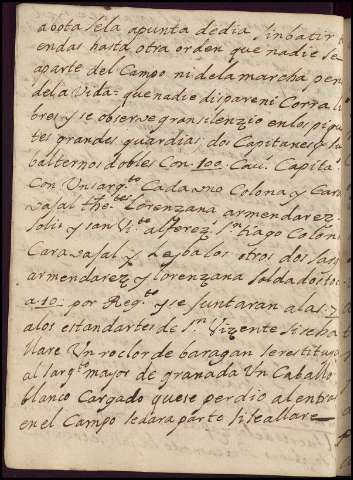 abotasela apunta dedia sinbatir ti
endas hasta otra orden que nadie se
aparte del Campo ni dela marcha pena
dela Vida = que nadie dispare ni Corra li
bres y se observe gran silenzio en los pique
tes grandes guardias dos Capitanes y su
balternos dobles Con 100 Cau. Capita
Con Un sarg.to Cada Uno Colona y Cara
vasal the.tes Lorenzana armendarez
solis y san Vi.te alferez s.n tiago Colon
Caravasal y Leyba los otros dos sar
armendarez y Lorenzana soldados to
a 10 por Reg.to y se juntaran a las 7
alos estandartes de S.n Vizente si se ha
llare Un roclor de baragan se restituya
al sarg.to mayor de granada Un Caballo
blanco Cargado que se perdio al entrar
en el Campo se dara parte si se allare